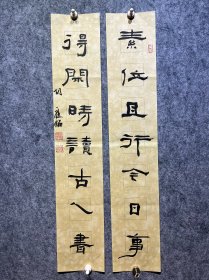 素位且行今日事
得閒時讀古人書